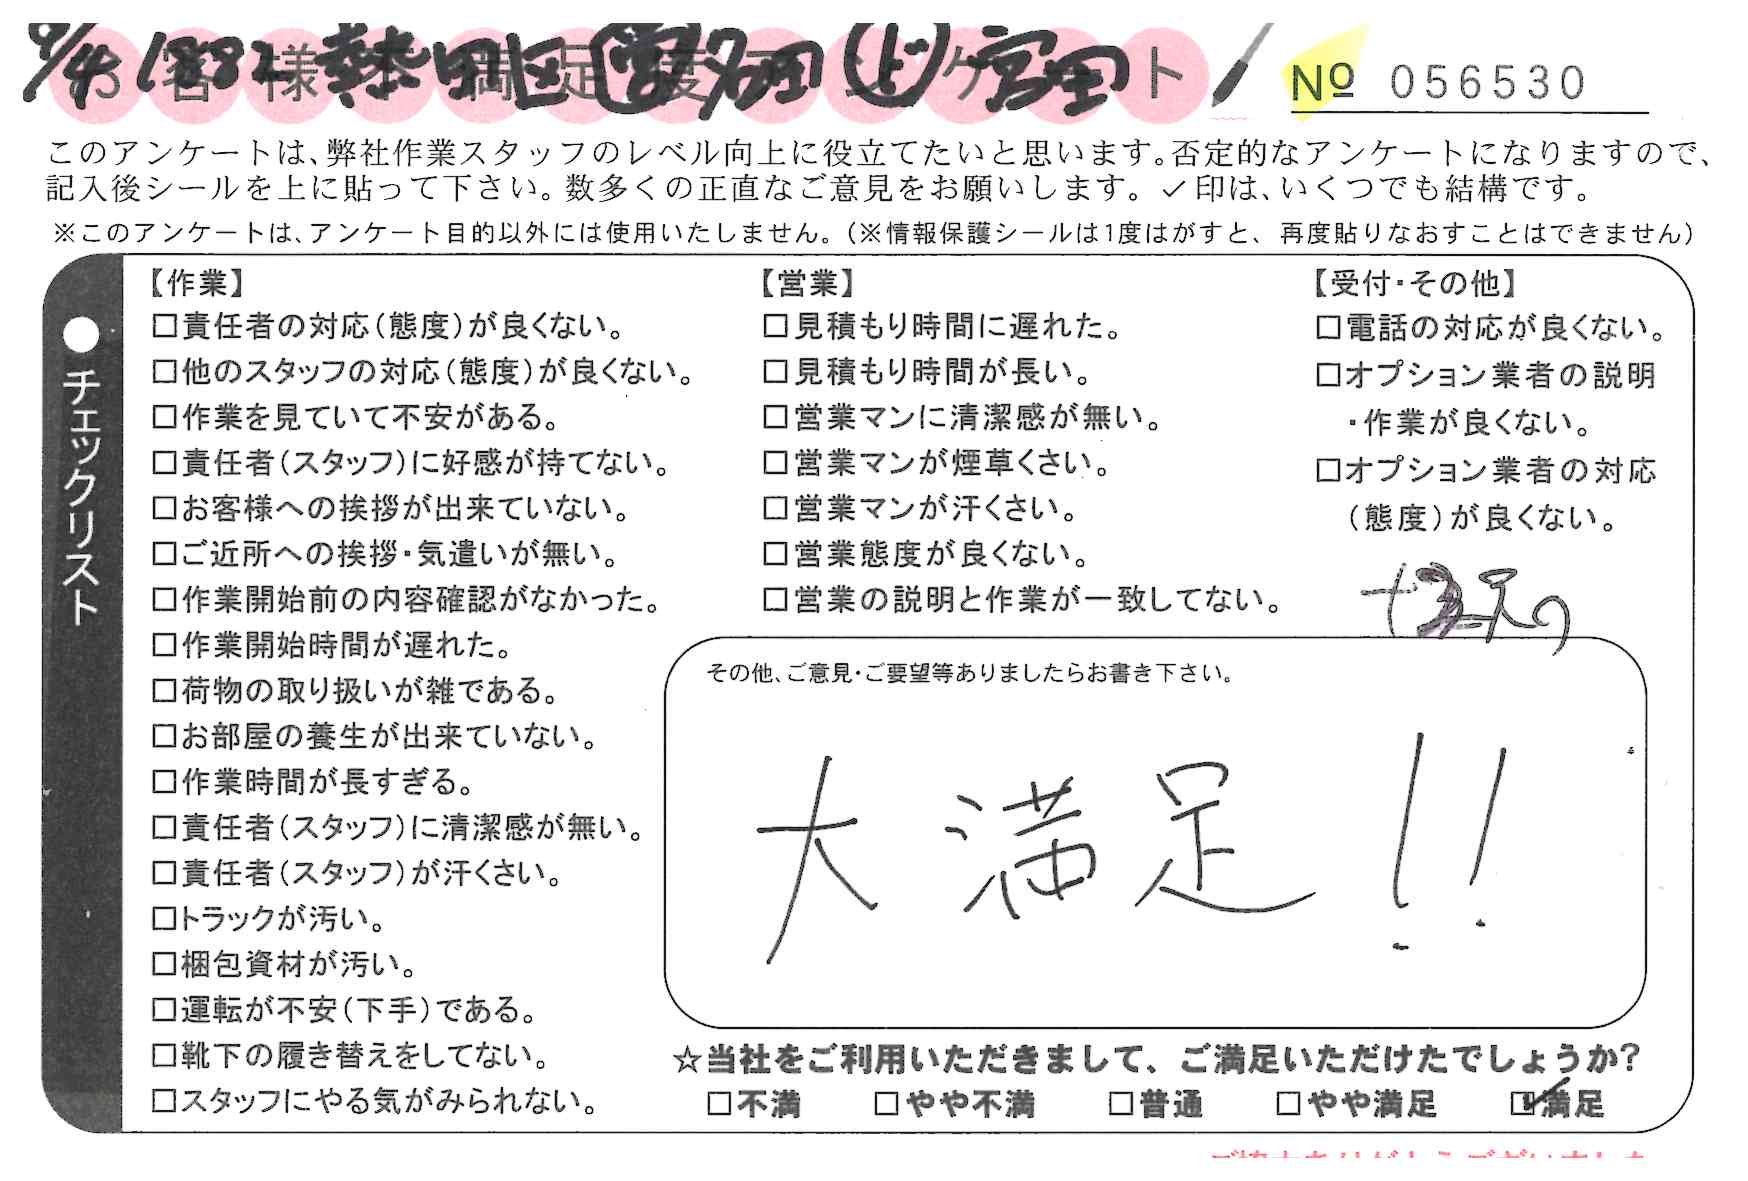 9/4 1882 熱田区 宮田
お客様不満足度アンケート
No 056530
このアンケートは、弊社作業スタッフのレベル向上に役立てたいと思います。否定的なアンケートになりますので、
記入後シールを上に貼って下さい。数多くの正直なご意見をお願いします。✓印は、いくつでも結構です。
※このアンケートは、アンケート目的以外には使用いたしません。（※情報保護シールは1度はがすと、再度貼りなおすことはできません）
●チェックリスト
【作業】
□責任者の対応（態度）が良くない。
□他のスタッフの対応（態度）が良くない。
□作業を見ていて不安がある。
□責任者（スタッフ）に好感が持てない。
□お客様への挨拶が出来ていない。
□ご近所への挨拶・気遣いが無い。
□作業開始前の内容確認がなかった。
□作業開始時間が遅れた。
□荷物の取り扱いが雑である。
□お部屋の養生が出来ていない。
□作業時間が長すぎる。
□責任者（スタッフ）に清潔感が無い。
□責任者（スタッフ）が汗くさい。
□トラックが汚い。
□梱包資材が汚い。
□運転が不安（下手）である。
□靴下の履き替えをしてない。
□スタッフにやる気がみられない。
【営業】
□見積もり時間に遅れた。
□見積もり時間が長い。
□営業マンに清潔感が無い。
□営業マンが煙草くさい。
□営業マンが汗くさい。
□営業態度が良くない。
□営業の説明と作業が一致してない。
【受付・その他】
□電話の対応が良くない。
□オプション業者の説明
・作業が良くない。
□オプション業者の対応
（態度）が良くない。
その他、ご意見・ご要望等ありましたらお書き下さい。
大満足!!
☆当社をご利用いただきまして、ご満足いただけたでしょうか?
□不満 □やや不満 □普通 □やや満足 ☑満足